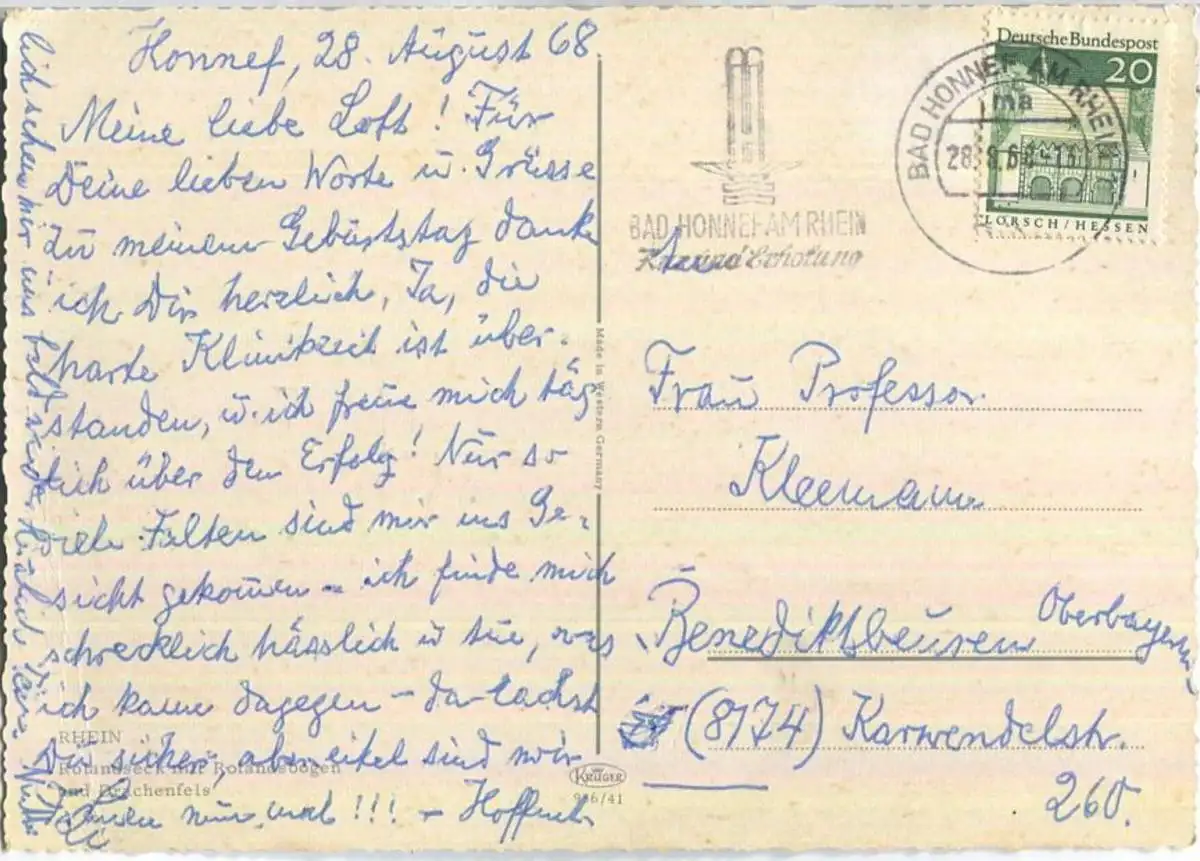 Honnef, 28. August 68
Meine liebe Lott! Für
Deine lieben Worte u. Grüsse
zu meinem Geburtstag danke
ich Dir herzlich, Ja, die
harte Klinikzeit ist über-
standen, u. ich freue mich täg
lich über den Erfolg! Nur so
viele Falten sind mir ins Ge-
sicht gekommen – ich finde mich
schrecklich hässlich u tue, was
ich kann dagegen – da lachst
Du sicher, aber eitel sind wir
Damen nun mal!!! – Hoffent-
lich sehen wir uns bald wieder Herzlichst Deine
RHEIN
Rolandseck mit Rolandsbogen
und Drachenfels
Made in Western Germany
KRÜGER
936/41
BAD HONNEF AM RHEIN
Kur und Erholung
BAD HONNEF AM RHEIN
ma
28.8.68-16
Deutsche Bundespost
20
LORSCH/HESSEN
Frau Professor
Kleemann
Benediktbeuren Oberbayern
(8174) Karwendelstr.
260.